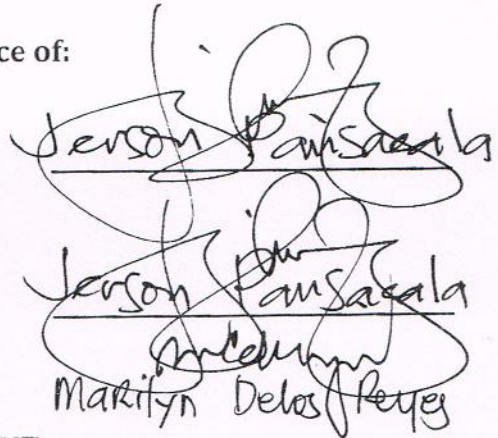 ce of:
Jerson Pansacala
Jerson Pansacala
Marilyn Delos Reyes